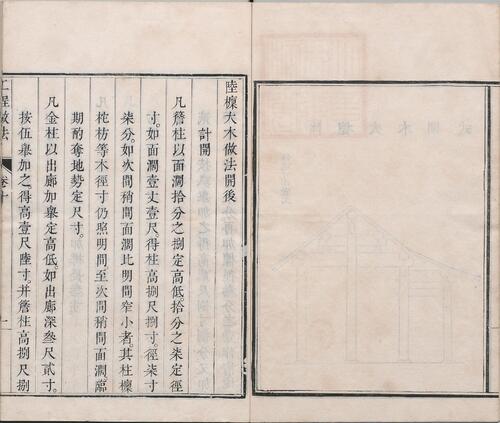 陸檩大木做法開後
計開
凡簷柱以面濶拾分之捌定高低。拾分之柒定徑
寸。如面濶壹丈壹尺。得柱高捌尺捌寸。徑柒寸
柒分。如次間稍間面濶比明間窄小者。其柱檩
柁枋等木徑寸仍照明間至次間稍間面濶臨
期酌奪地勢定尺寸。
凡金柱以出廊加舉定高低。如出廊深叁尺貳寸。
按伍舉加之。得高壹尺陸寸。并簷柱高捌尺捌
工程做法 卷十